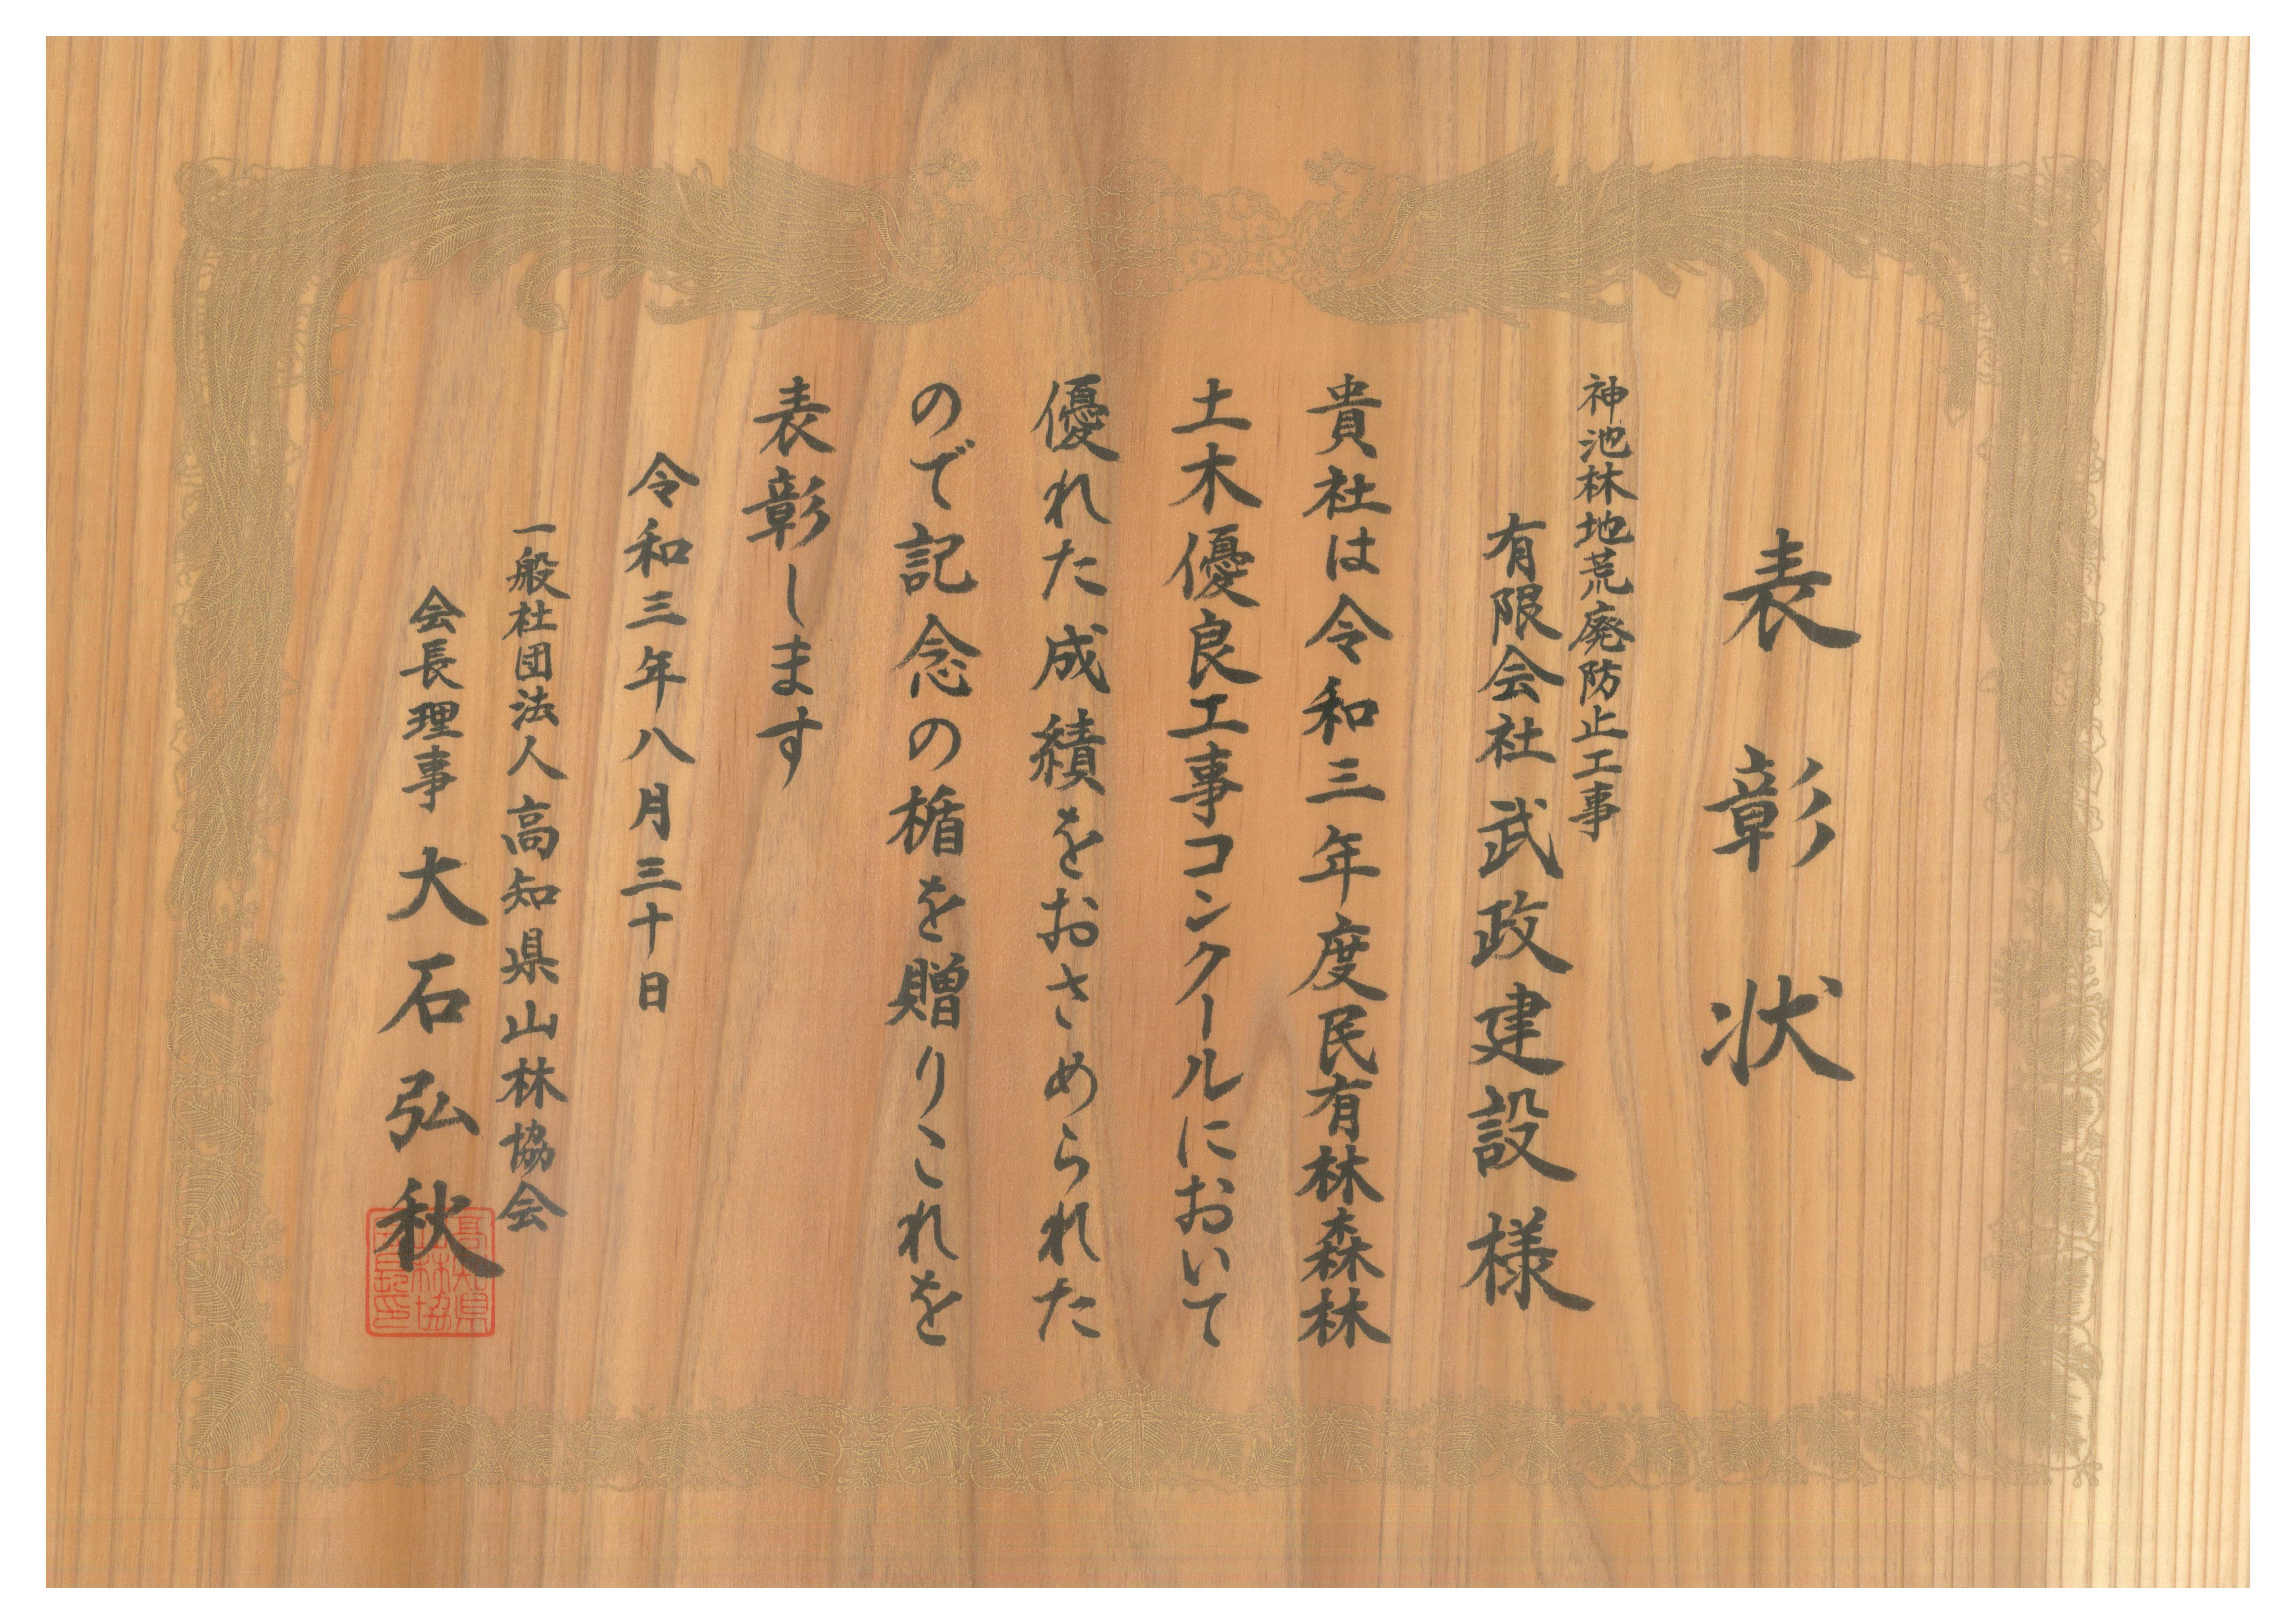 表彰状
神池林地荒廃防止工事
有限会社武政建設様
貴社は令和三年度民有林森林
土木優良工事コンクールにおいて
優れた成績をおさめられた
ので記念の楯を贈りこれを
表彰します
令和三年八月三十日
一般社団法人高知県山林協会
会長理事大石弘秋